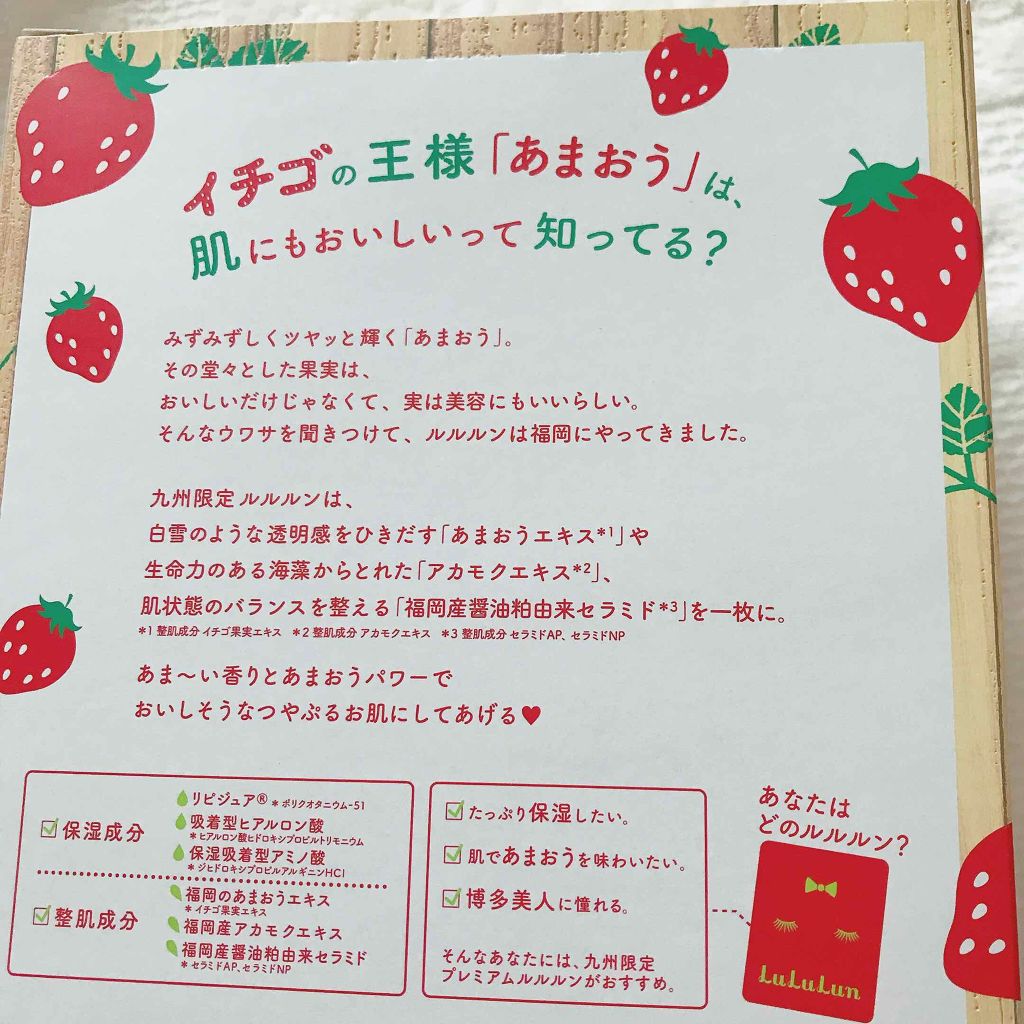 イチゴの王様「あまおう」は、
肌にもおいしいって知ってる?
みずみずしくツヤッと輝く「あまおう」。
その堂々とした果実は、
おいしいだけじゃなくて、実は美容にもいいらしい。
そんなウワサを聞きつけて、ルルルンは福岡にやってきました。
九州限定ルルルンは、
白雪のような透明感をひきだす「あまおうエキス*1」や
生命力のある海藻からとれた「アカモクエキス*2」、
肌状態のバランスを整える「福岡産醤油粕由来セラミド*3」を一枚に。
*1 整肌成分 イチゴ果実エキス *2 整肌成分 アカモクエキス *3 整肌成分 セラミドAP、セラミドNP
あま〜い香りとあまおうパワーで
おいしそうなつやぷるお肌にしてあげる♥
保湿成分
リピジュア® *ポリクオタニウム-51
吸着型ヒアルロン酸
*ヒアルロン酸ヒドロキシプロピルトリモニウム
保湿吸着型アミノ酸
*ジヒドロキシプロピルアルギニンHCl
整肌成分
福岡のあまおうエキス
*イチゴ果実エキス
福岡産アカモクエキス
福岡産醤油粕由来セラミド
*セラミドAP、セラミドNP
たっぷり保湿したい。
肌であまおうを味わいたい。
博多美人に憧れる。
そんなあなたには、九州限定
プレミアムルルルンがおすすめ。
あなたは
どのルルルン?
LuLuLun